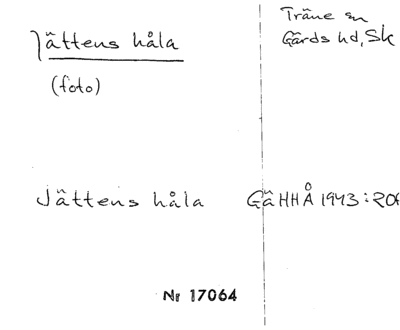 Jättens håla
Träne sn
Gärds hd, Sk
(foto)
Jättens håla GäHHÅ 1943:206
Nr 17064